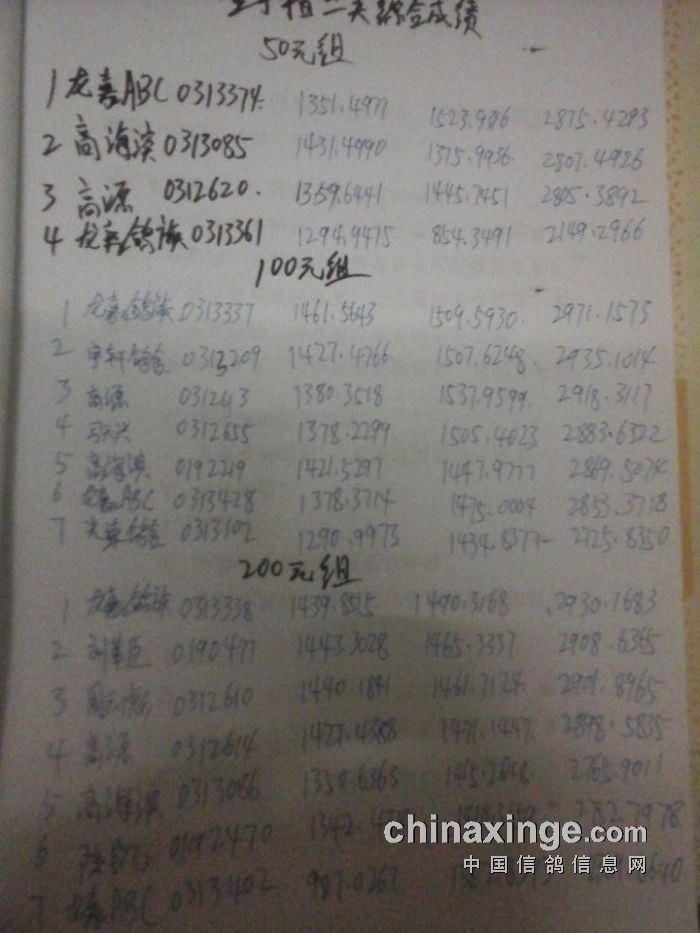 二关综合成绩
50元组
1 龙嘉ABC 0313374 1351.4977 1523.9216 2875.4293
2 高海滨 0313085 1431.4990 1375.9936 2807.4926
3 高源 0312620 1359.6441 1445.7451 2805.3892
4 龙嘉鸽族 0313361 1294.9475 854.3491 2149.2966
100元组
1 龙嘉鸽族 0313337 1461.5643 1509.5930 2971.1573
2 宇轩鸽舍 0313209 1427.4766 1507.6248 2935.1014
3 高源 0312613 1380.3518 1537.9599 2918.3117
4 0312655 1378.2299 1505.4023 2883.6322
5 高海滨 0192219 1421.5297 1447.9777 2869.5074
6 龙嘉ABC 0313428 1378.3714 1475.0004 2853.3718
7 鸽舍 0313102 1290.9973 1434.8377 2725.8350
200元组
1 龙嘉鸽族 0313338 1439.8515 1490.3168 2930.1683
2 0190477 1443.3028 1465.3337 2908.6365
3 0312610 1440.1841 1461.7124 2901.8965
4 高源 0312614 1427.4388 1471.1447 2898.5835
5 高海滨 0313086 1350.6363 2765.9011
6 0192470 1342.
7 龙嘉ABC 0313402 981.0267
chinaxinge.com
中国信鸽信息网